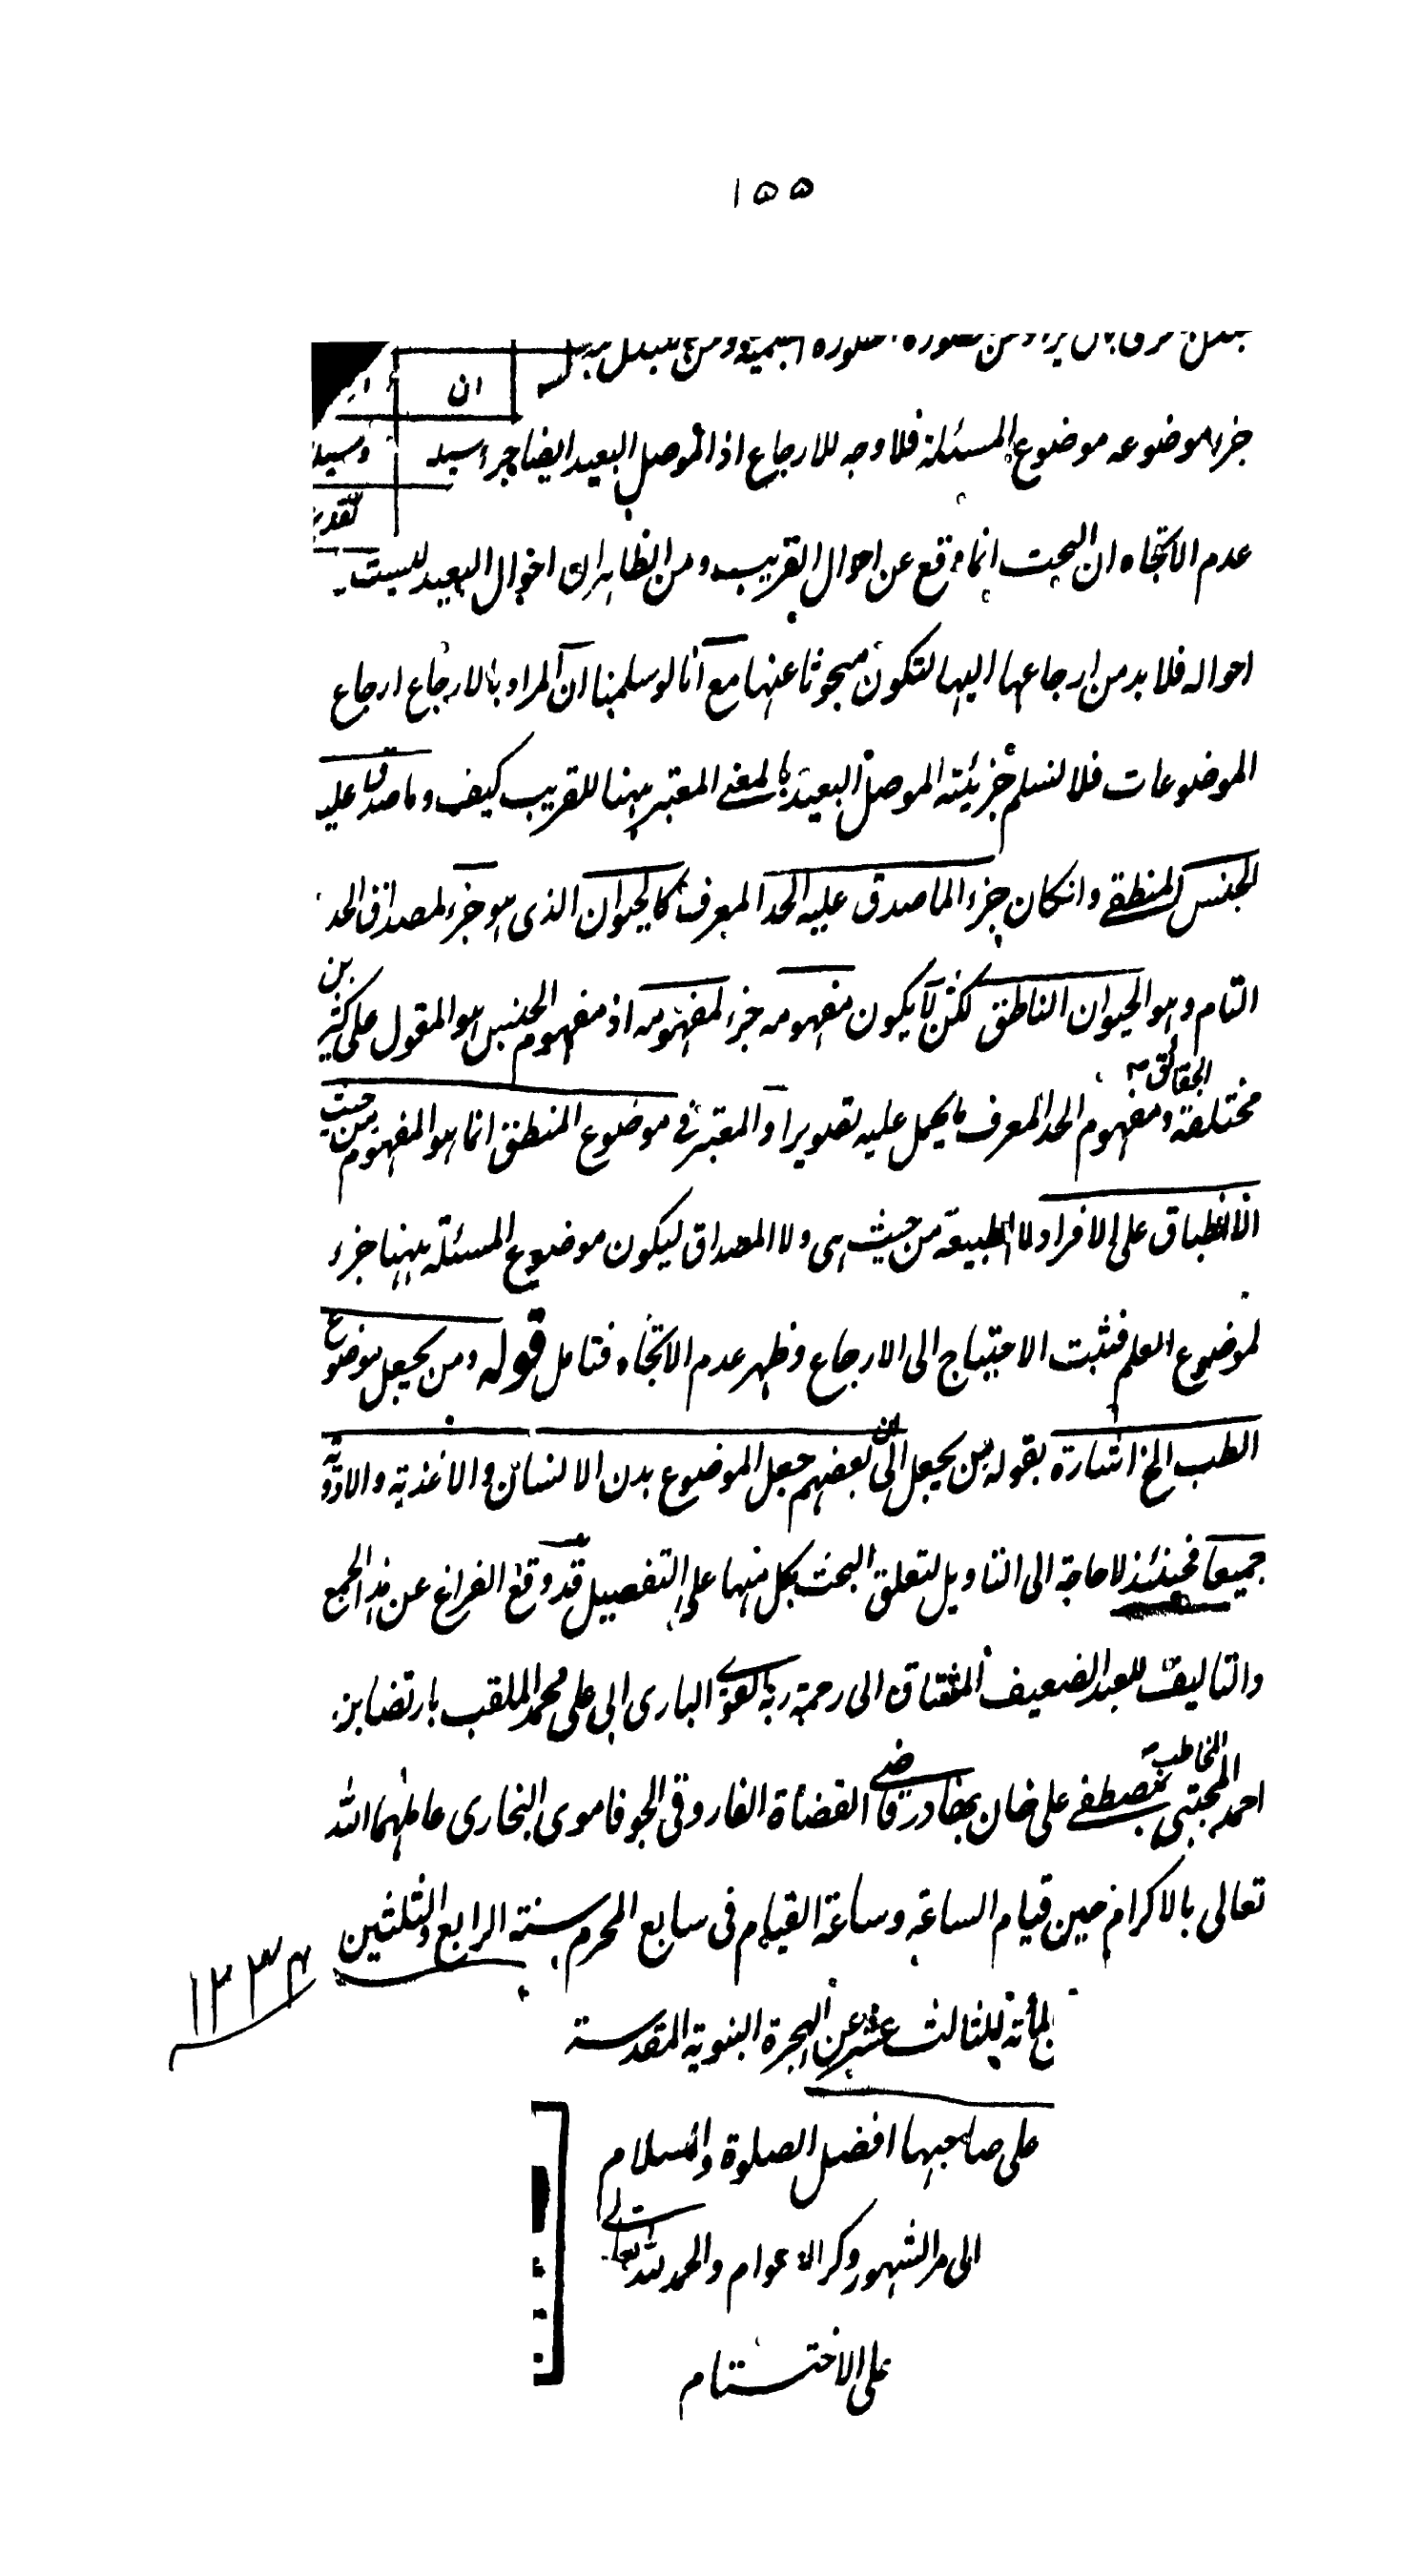 ١٥٥
ان
جزء موضوعه موضوع المسئلة فلا وجه للارجاع اذ الموصل البعيد ايضا جزء
عدم الاتجاه ان البحث انما وقع عن احوال القريب ومن الظاهر ان احوال البعيد ليست
احواله فلا بد من ارجاعها اليها لتكون مبحوثا عنها مع انا لو سلمنا ان المراد بالارجاع ارجاع
الموضوعات فلا نسلم جزئية الموصل البعيد بالمعنى المعتبر ههنا للقريب كيف وما صدق عليه
الجنس المنطقي وانكان جزء الما صدق عليه الحد المعرف كالحيوان الذى هو جزء لمصداق الحد
التام وهو الحيوان الناطق لكن لا يكون مفهومه جزء لمفهومه اذ مفهوم الجنس هو المقول على كثيرين
مختلفة الحقائق ومفهوم الحد المعرف ما يحمل عليه تصويرا والمعتبر في موضوع المنطق انما هو المفهوم من حيث
الانطباق على الافراد لا الطبيعة من حيث هى ولا المصداق ليكون موضوع المسئلة ههنا جزء
لموضوع العلم فثبت الاحتياج الى الارجاع وظهر عدم الاتجاه فتامل قوله ومن يجعل موضوع
الطب الخ اشارة بقوله من يجعل الى ان بعضهم جعل الموضوع بدن الانسان والاغذية والادوية
جميعا فحينئذ لا حاجة الى التاويل لتعلق البحث بكل منها على التفصيل قد وقع الفراغ عن هذا الجمع
والتاليف للعبد الضعيف المشتاق الى رحمة ربه القوى البارى ابى على محمد الملقب بارتضا بن
احمد المجتبى المخاطب بمصطفى على خان بهادر قاضى القضاة الفاروقى الجوفاموى البخارى عاملهما الله
تعالى بالاكرام حين قيام الساعة وساعة القيام فى سابع المحرم سنة الرابع والثلثين
١٢٣٤
المأته للثالث عشر عن الهجرة النبوية المقدسة
على صاحبها افضل الصلوة والسلام
الى مر الشهور وكر الاعوام والحمد لله تعالى
على الاختتام